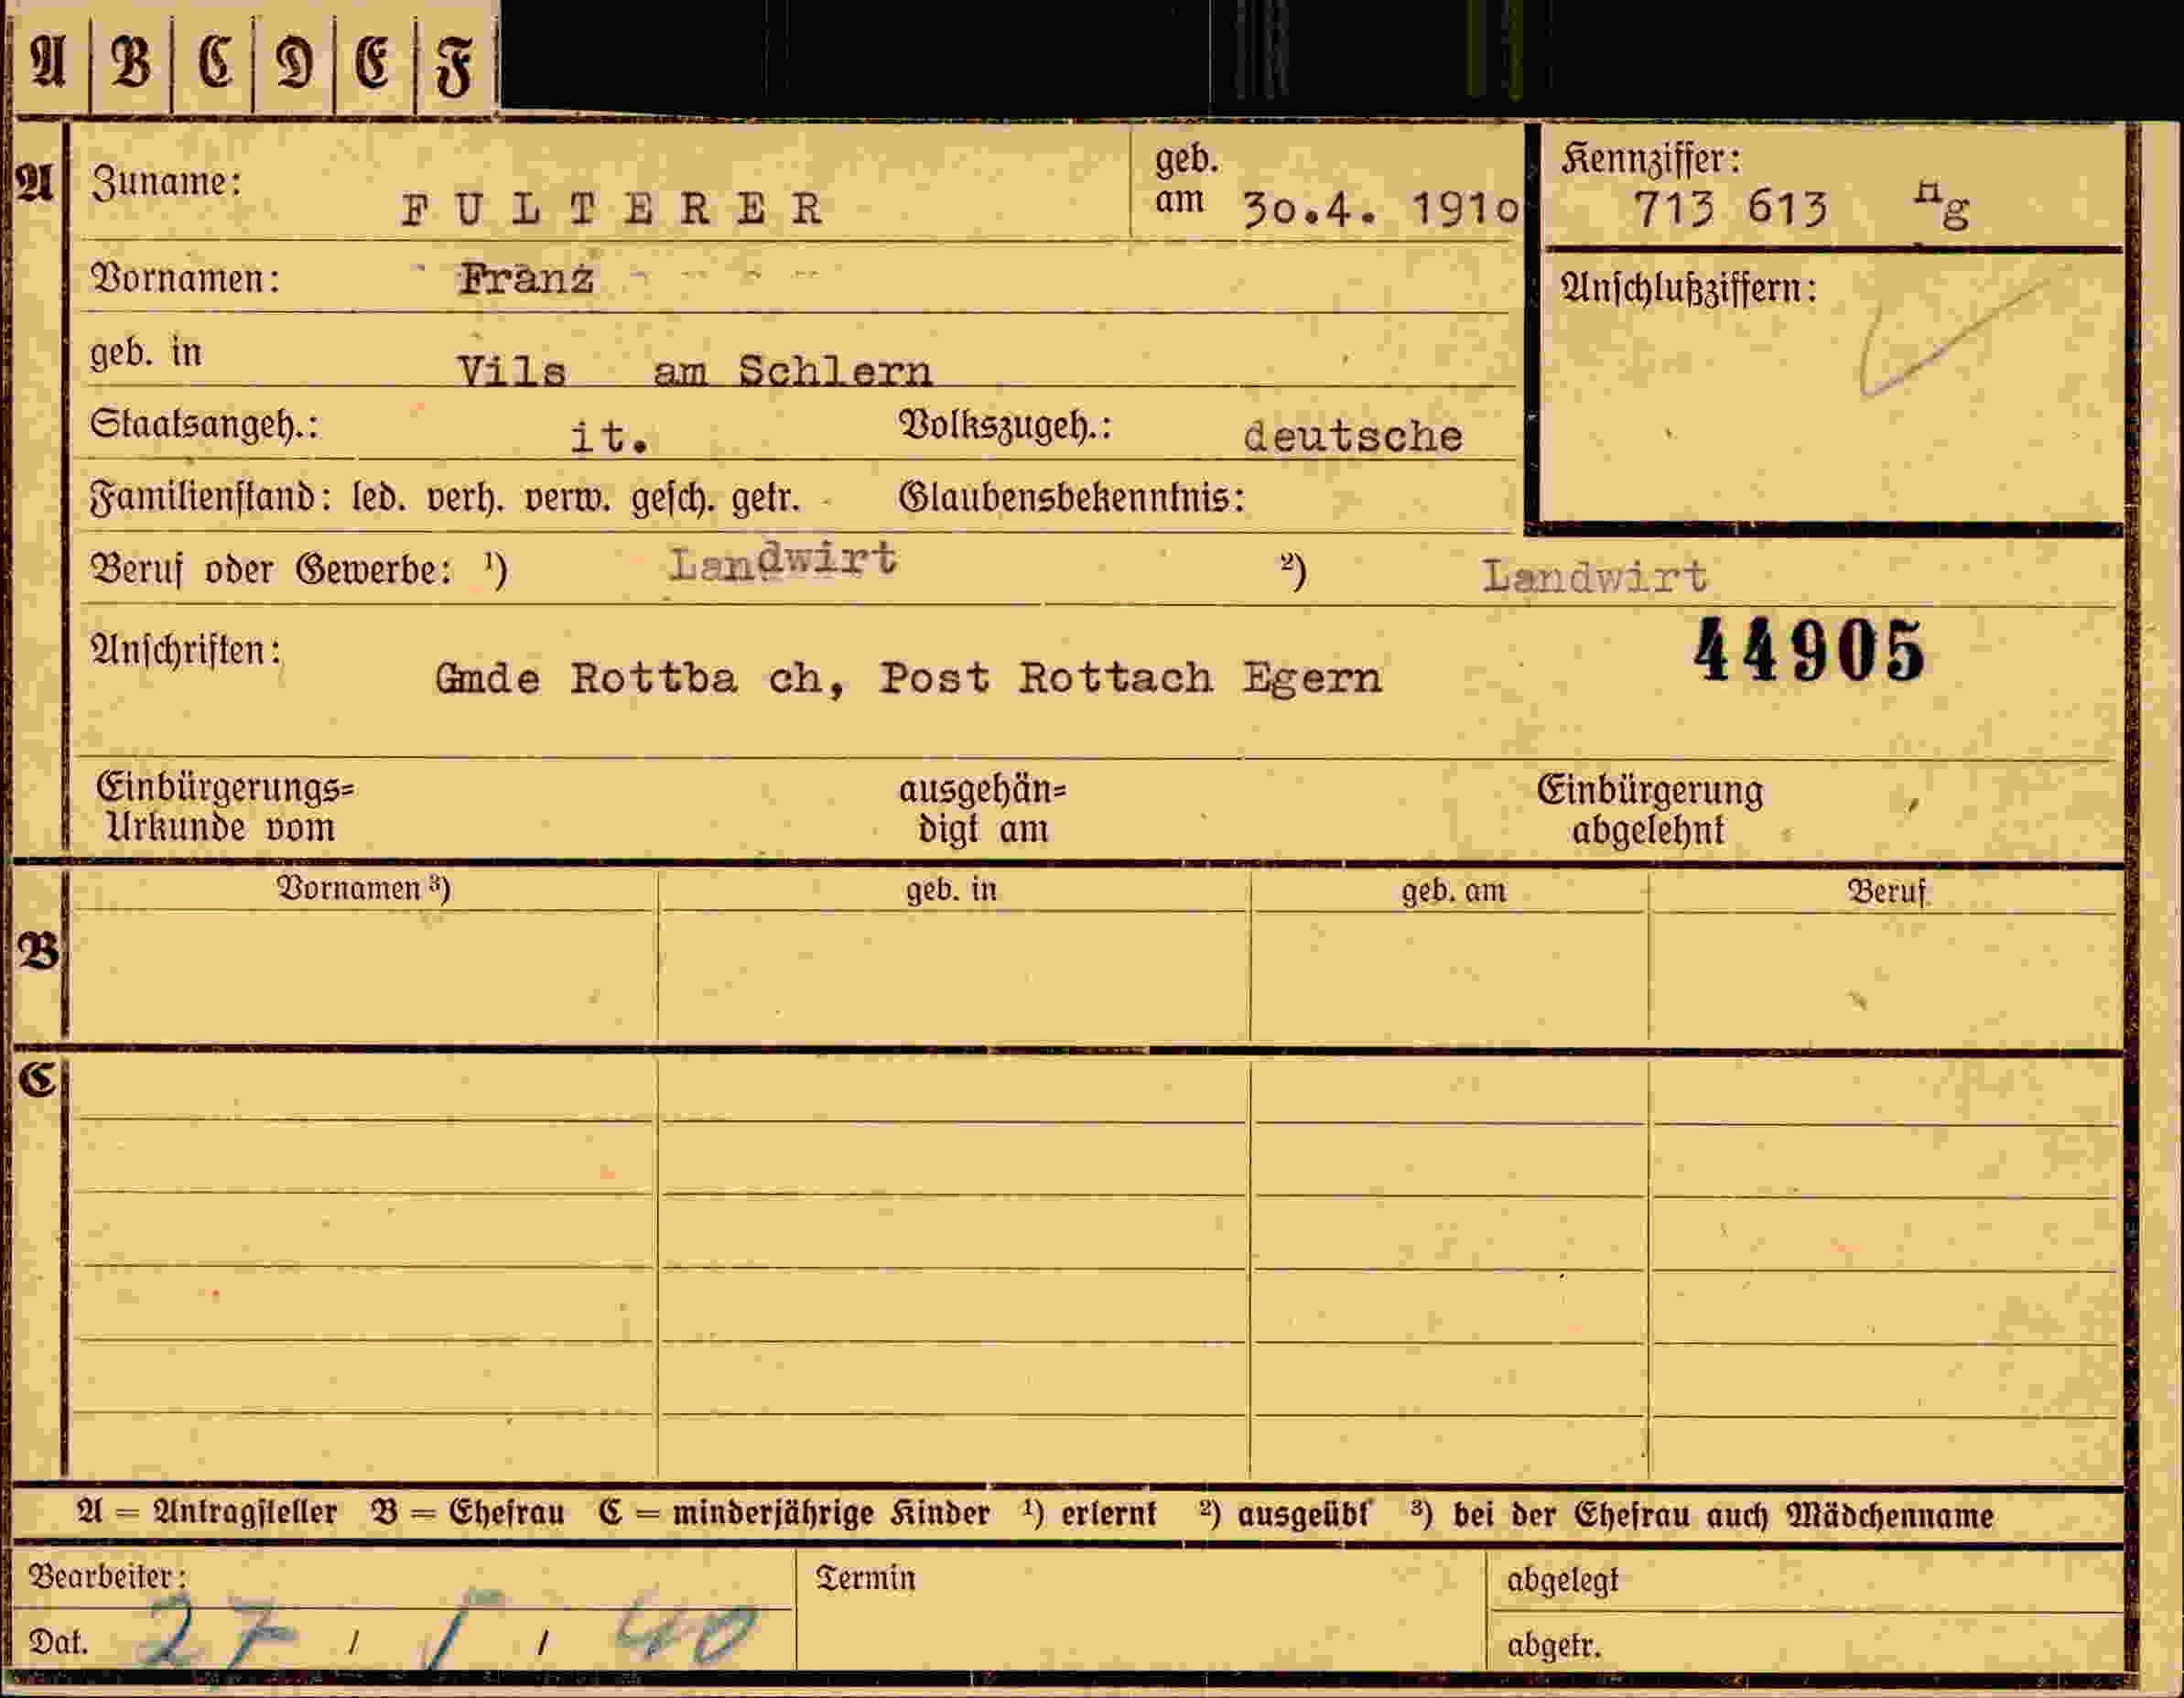 A B C D E F
A Zuname: FULTERER geb. am 30.4. 1910 Kennziffer: 713 613
Vornamen: Franz Anschlußziffern:
geb. in Vils am Schlern
Staatsangeh.: it. Volkszugeh.: deutsche
Familienstand: led. verh. verw. gesch. getr. Glaubensbekenntnis:
Beruf oder Gewerbe: ¹) Landwirt ²) Landwirt
Anschriften: Gmde Rottba ch, Post Rottach Egern 44905
Einbürgerungs= ausgehän= Einbürgerung
Urkunde vom digt am abgelehnt
B Vornamen ³) geb. in geb. am Beruf
C
A = Antragsteller B = Ehefrau C = minderjährige Kinder ¹) erlernt ²) ausgeübt ³) bei der Ehefrau auch Mädchenname
Bearbeiter: Termin abgelegt
Dat. 27 / 5 / 40 abgetr.